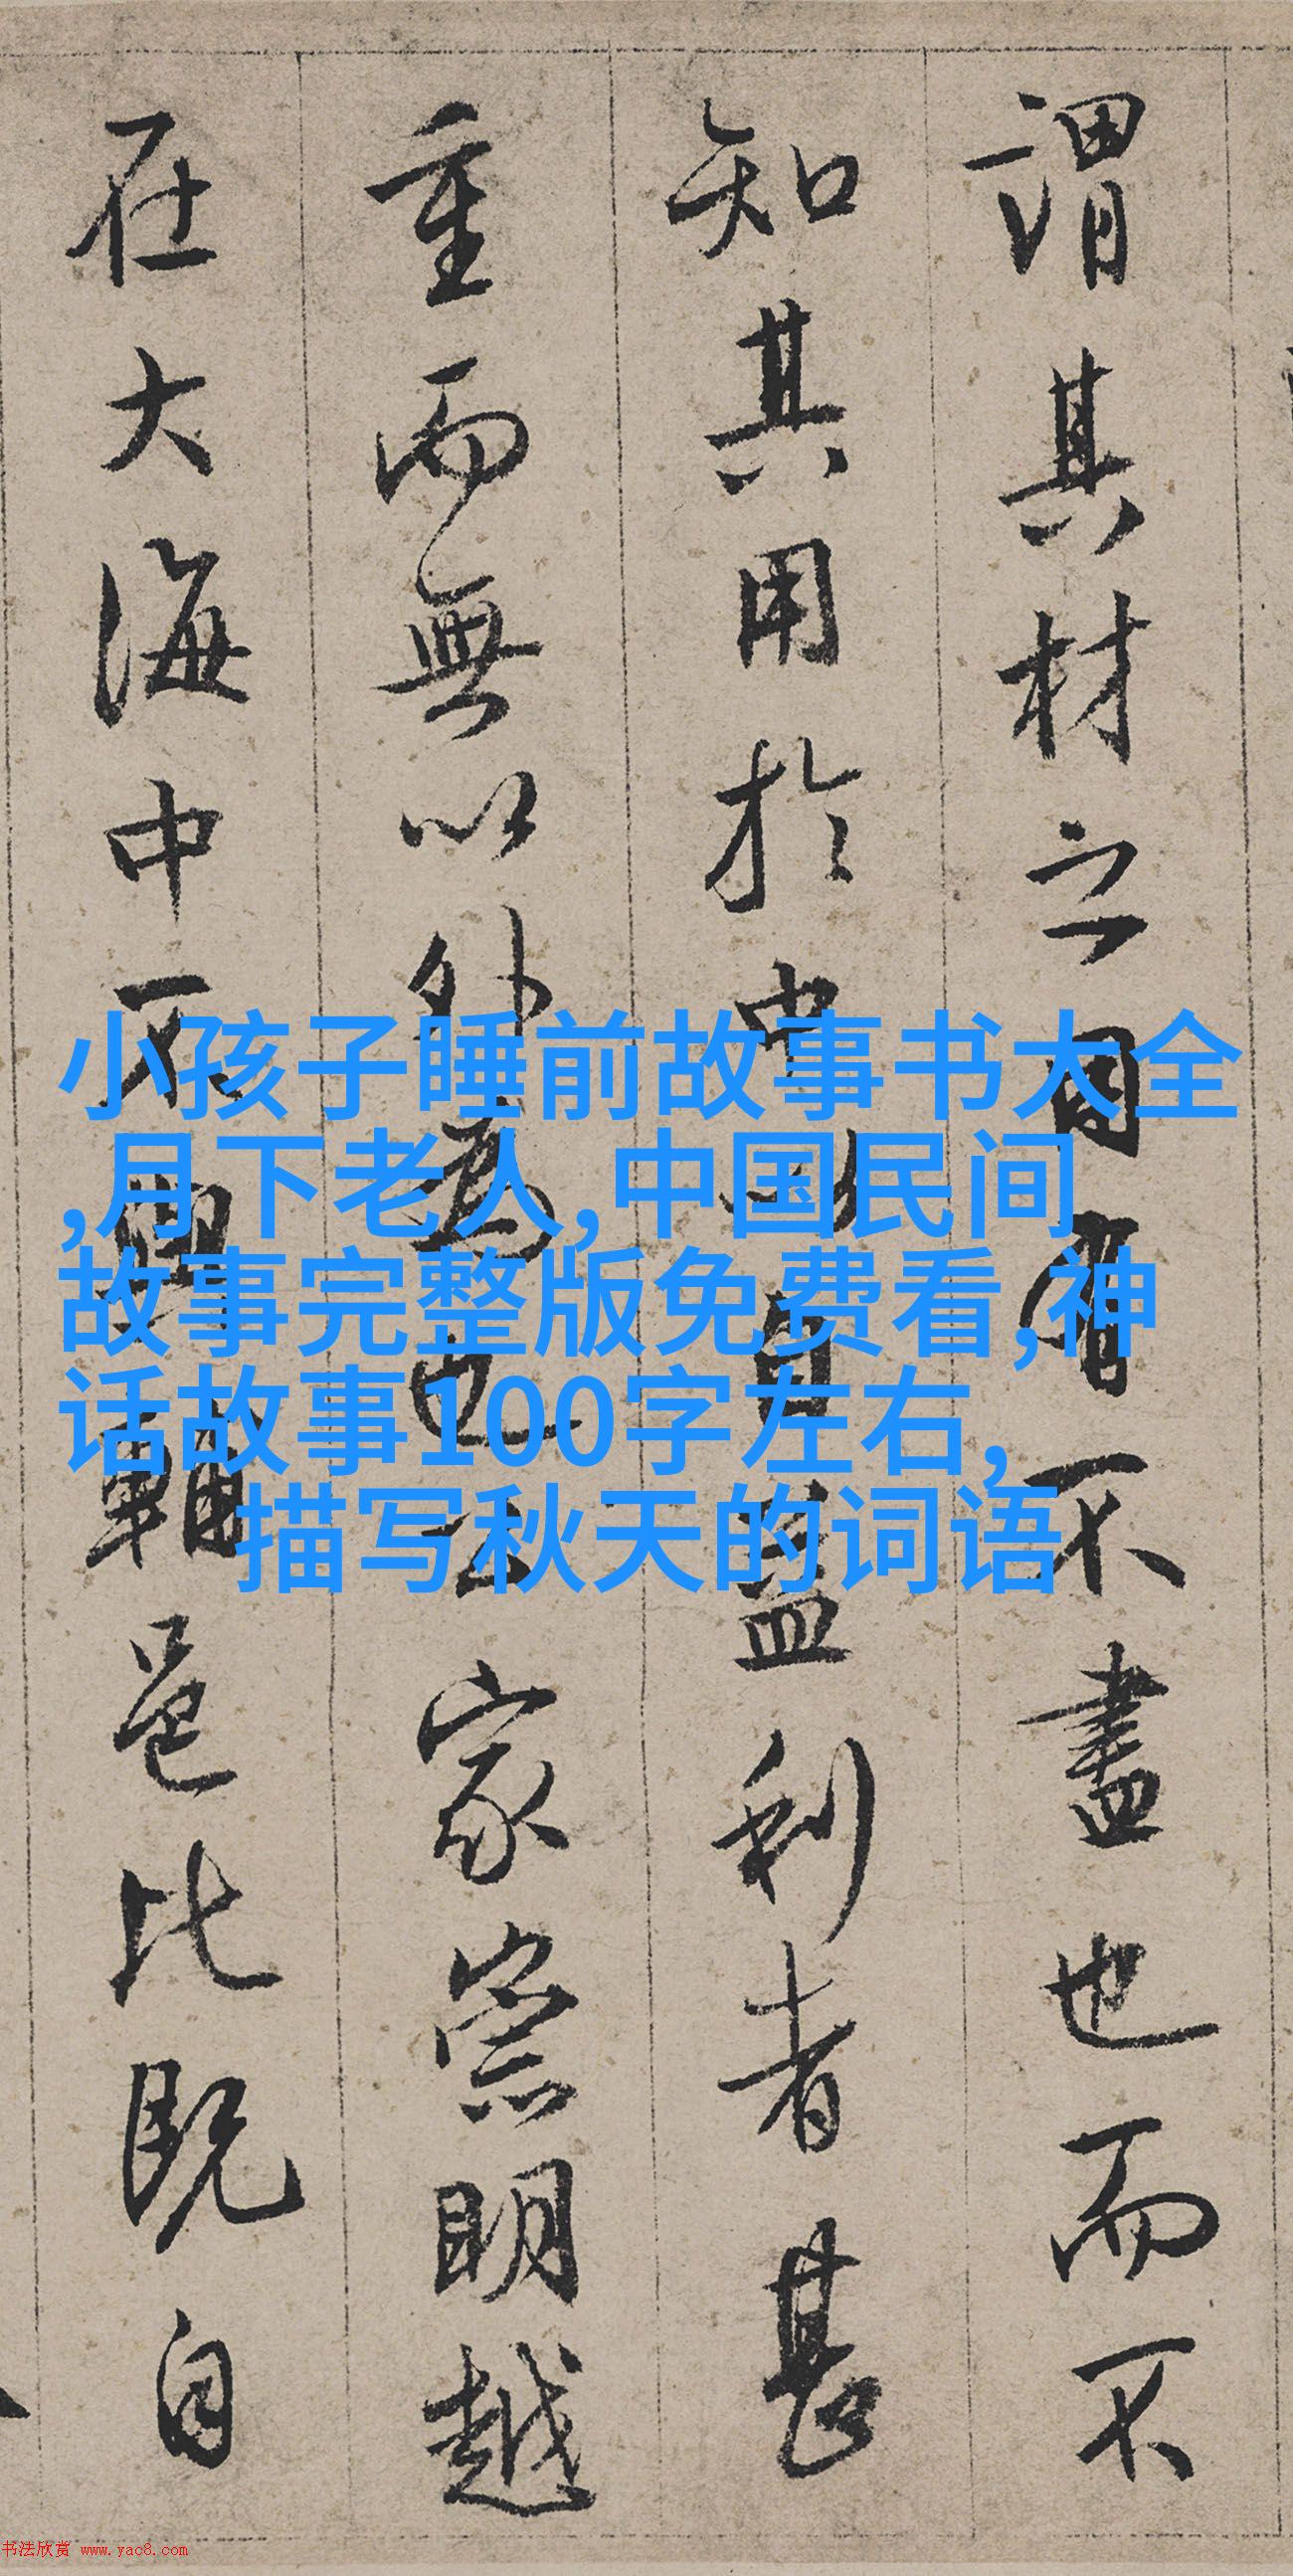 謂其材之有不盡也而不
知其用於中益利者甚
重而無以外為也家崇明越
在大海中不與輔邑比既自
小孩子睡前故事书大全
,月下老人,中国民间
故事完整版免费看,神
话故事100字左右,
描写秋天的词语
书法欣赏 www.yac8.com